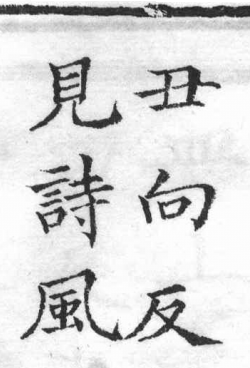 丑向反
見詩風